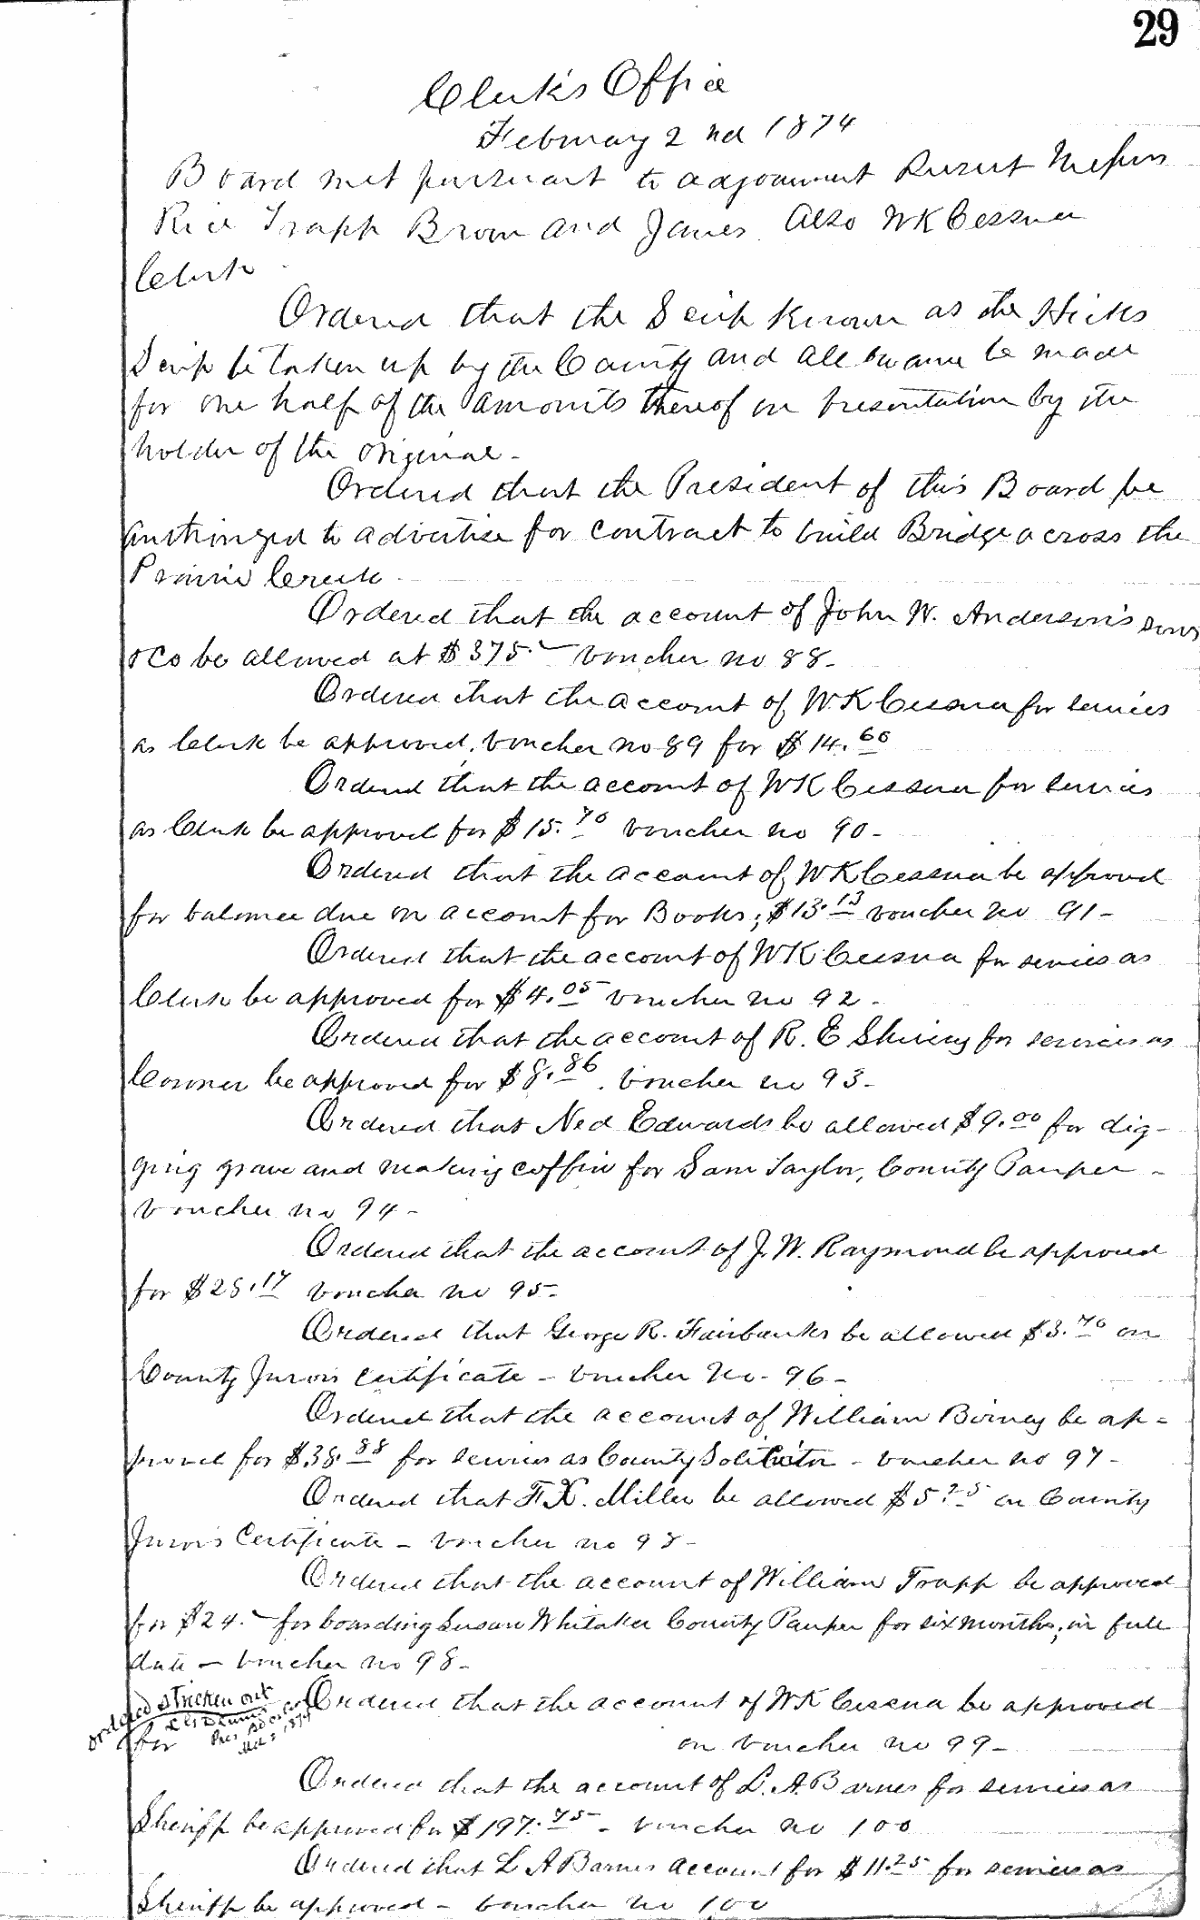 29
Clerk's Office
February 2nd 1874
Board met pursuant to adjournment Present Messrs
Rice Trapp Brown and James. Also WK Cessna
Clerk
Ordered that the Scrip known as the Hicks
Scrip be taken up by the County and allowance be made
for one half of the amounts thereof on presentation by the
holder of the original -
Ordered that the President of this Board be
authorized to advertise for contract to build Bridge across the
Prairie Creek -
Ordered that the account of John W. Anderson's Sons
& Co be allowed at $375.- voucher no 88-
Ordered that the account of WK Cessna for services
as Clerk be approved, voucher no 89 for $14.60
Ordered that the account of WK Cessna for services
as Clerk be approved for $15.70 voucher no 90-
Ordered that the account of WK Cessna be approved
for balance due on account for Books, $13.13 voucher no 91-
Ordered that the account of WK Cessna for services as
Clerk be approved for $4.05 voucher no 92-
Ordered that the account of R. E Shivey for services as
Coroner be approved for $8.86. voucher no 93-
Ordered that Ned Edwards be allowed $9.00 for dig-
ging grave and making coffin for Sam Taylor, County Pauper -
voucher no 94-
Ordered that the account of J. W. Raymond be approved
for $25.17 voucher no 95-
Ordered that George R. Fairbanks be allowed $3.70 on
County Jurors Certificate - voucher No. 96-
Ordered that the account of William Birney be ap-
proved for $38.88 for services as County Solicitor - voucher no 97-
Ordered that F. X. Miller be allowed $5.25 on County
Juror's Certificate - voucher no 98-
Ordered that the account of William Trapp be approved
for $24.- for boarding Susan Whitaker County Pauper for six months, in full
date - voucher no 98-
ordered stricken out
Ordered that the account of WK Cessna be approved
for on voucher no 99-
Ordered that the account of L. A. Barnes for services as
Sheriff be approved for $197.75 - voucher no 100
Ordered that L A Barnes account for $11.25 for services as
Sheriff be approved - voucher no 100